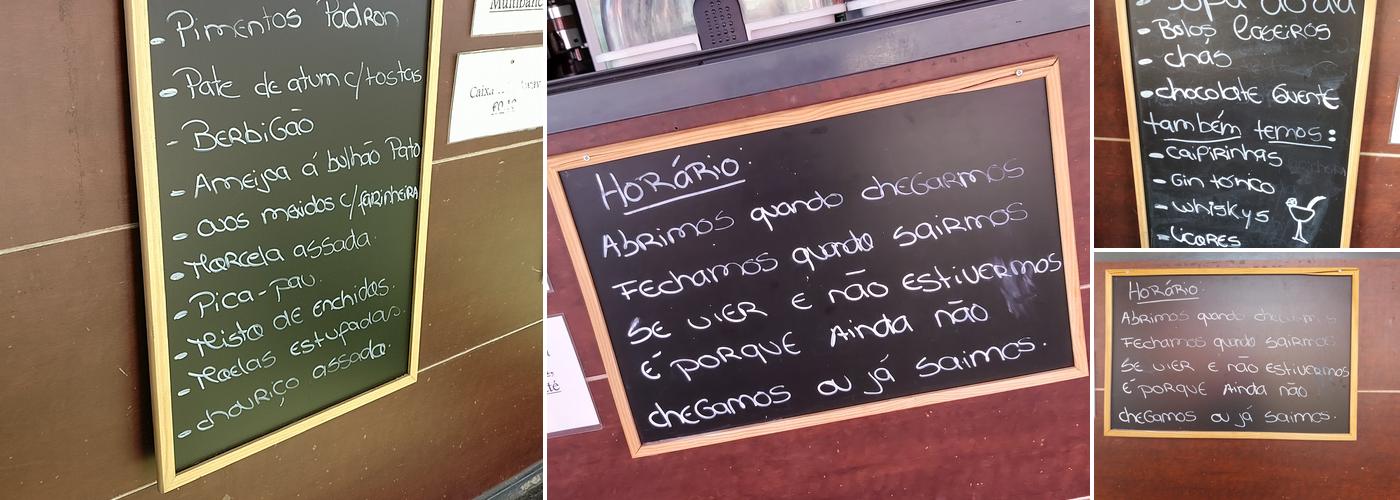 - Pimentos Padron
- Pate de atum c/tostas
- BERBiGão
- Ameijoa á bulhão Pato
- ovos mexidos c/farinheira
- Morcela assada.
- Pica-pau.
- Misto de enchidos.
- Moelas estufadas.
- chouriço assado.
Multibanc
Caixa
HORÁRio:
Abrimos quando cheGarmos
Fechamos quando sairmos
SE viER E não Estivermos
É PORQUE Ainda não
cheGamos ou já saimos.
Sopa do dia
- Bolos caseiros
- chás
- chocolate Quente
também temos:
- caipirinhas
- Gin tónico
- whiskys
- Licores
HORÁRio:
Abrimos quando
Fechamos quando sairmos
SE viER E não Estivermos
É PORQUE Ainda não
cheGamos ou já saimos.